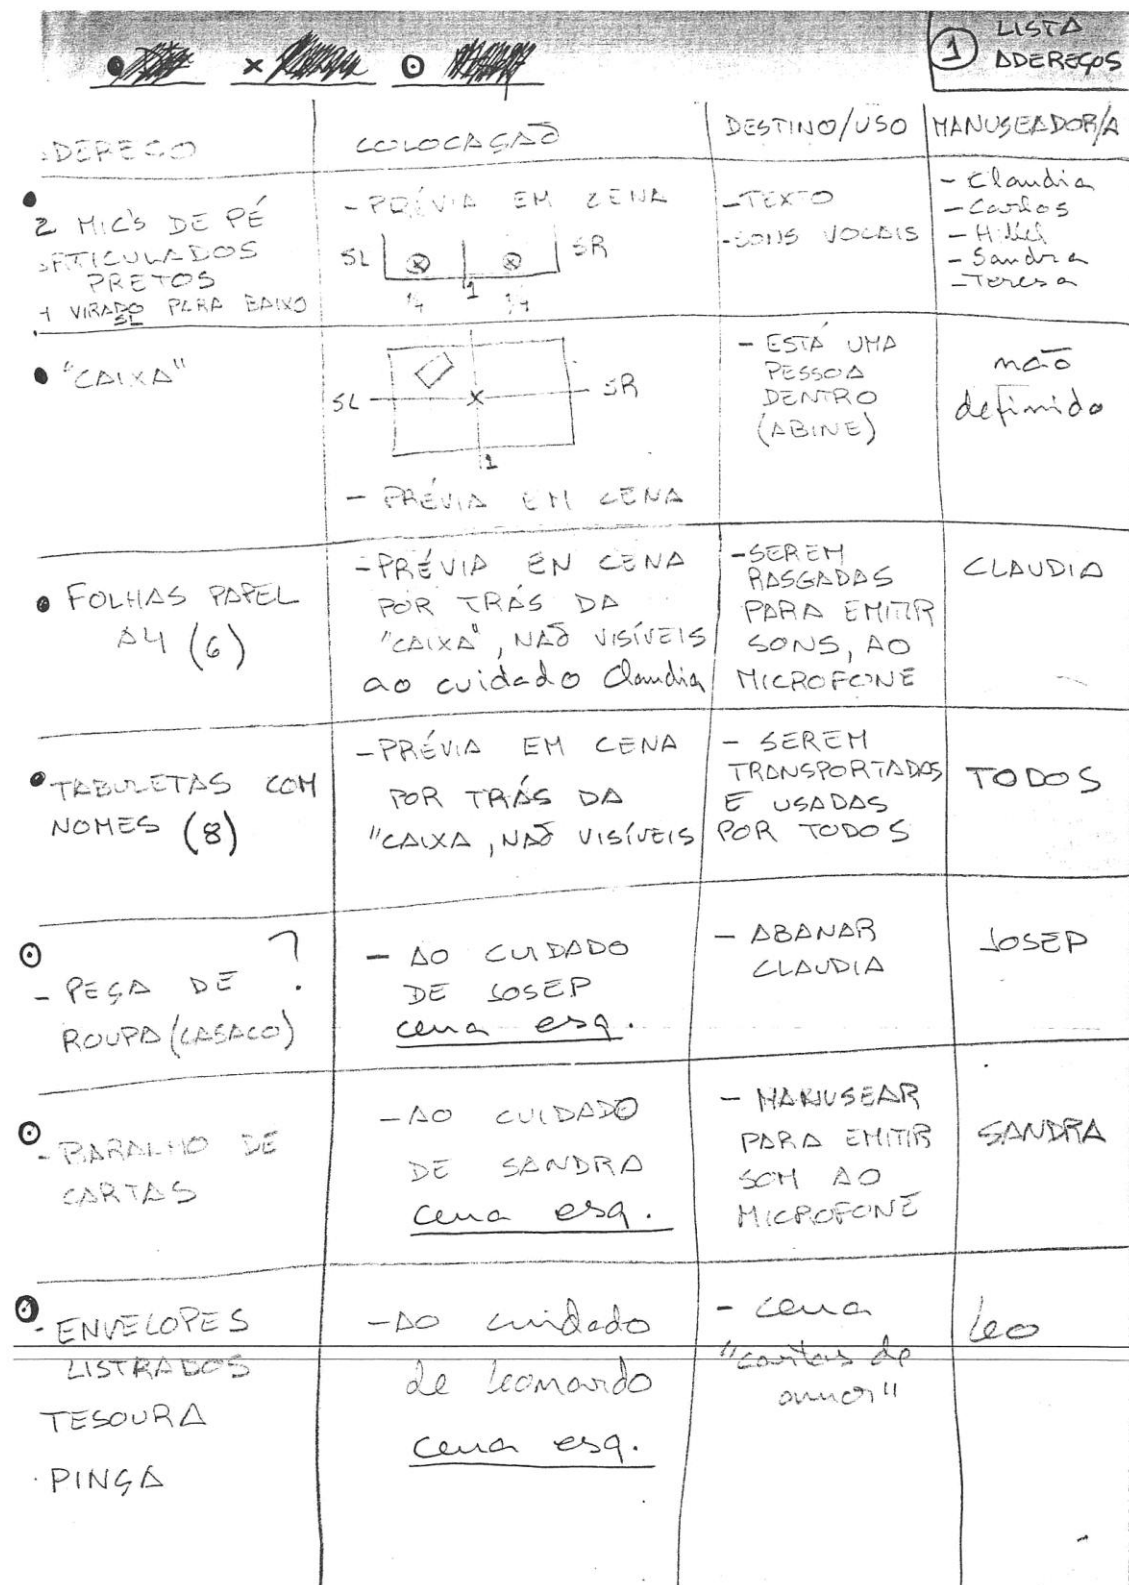 ① LISTA
ADEREÇOS
DEREÇO
COLOCAÇÃO
DESTINO/USO
MANUSEADOR/A
2 MIC'S DE PÉ
ARTICULADOS
PRETOS
1 VIRADO PARA BAIXO
SL
- PRÉVIA EM CENA
SL
SR
1
- TEXTO
- SONS VOCAIS
- Claudia
- Carlos
- Sandra
- Teresa
"CAIXA"
SL
SR
1
- PRÉVIA EM CENA
- ESTÁ UMA
PESSOA
DENTRO
(ABINE)
não
definido
FOLHAS PAPEL
A4 (6)
- PRÉVIA EN CENA
POR TRÁS DA
"CAIXA", NAÕ VISÍVEIS
ao cuidado Claudia
- SEREM
RASGADAS
PARA EMITIR
SONS, AO
MICROFONE
CLAUDIA
TABULETAS COM
NOMES (8)
- PRÉVIA EM CENA
POR TRÁS DA
"CAIXA, NAÕ VISÍVEIS
- SEREM
TRANSPORTADAS
E USADAS
POR TODOS
TODOS
- PEÇA DE ?
ROUPA (CASACO)
- AO CUIDADO
DE JOSEP
cena esq.
- ABANAR
CLAUDIA
JOSEP
- BARALHO DE
CARTAS
- AO CUIDADO
DE SANDRA
cena esq.
- MANUSEAR
PARA EMITIR
SOM AO
MICROFONE
SANDRA
- ENVELOPES
LISTRADOS
TESOURA
· PINÇA
- AO cuidado
de Leonardo
cena esq.
- cena
"cartas de
amor"
Leo